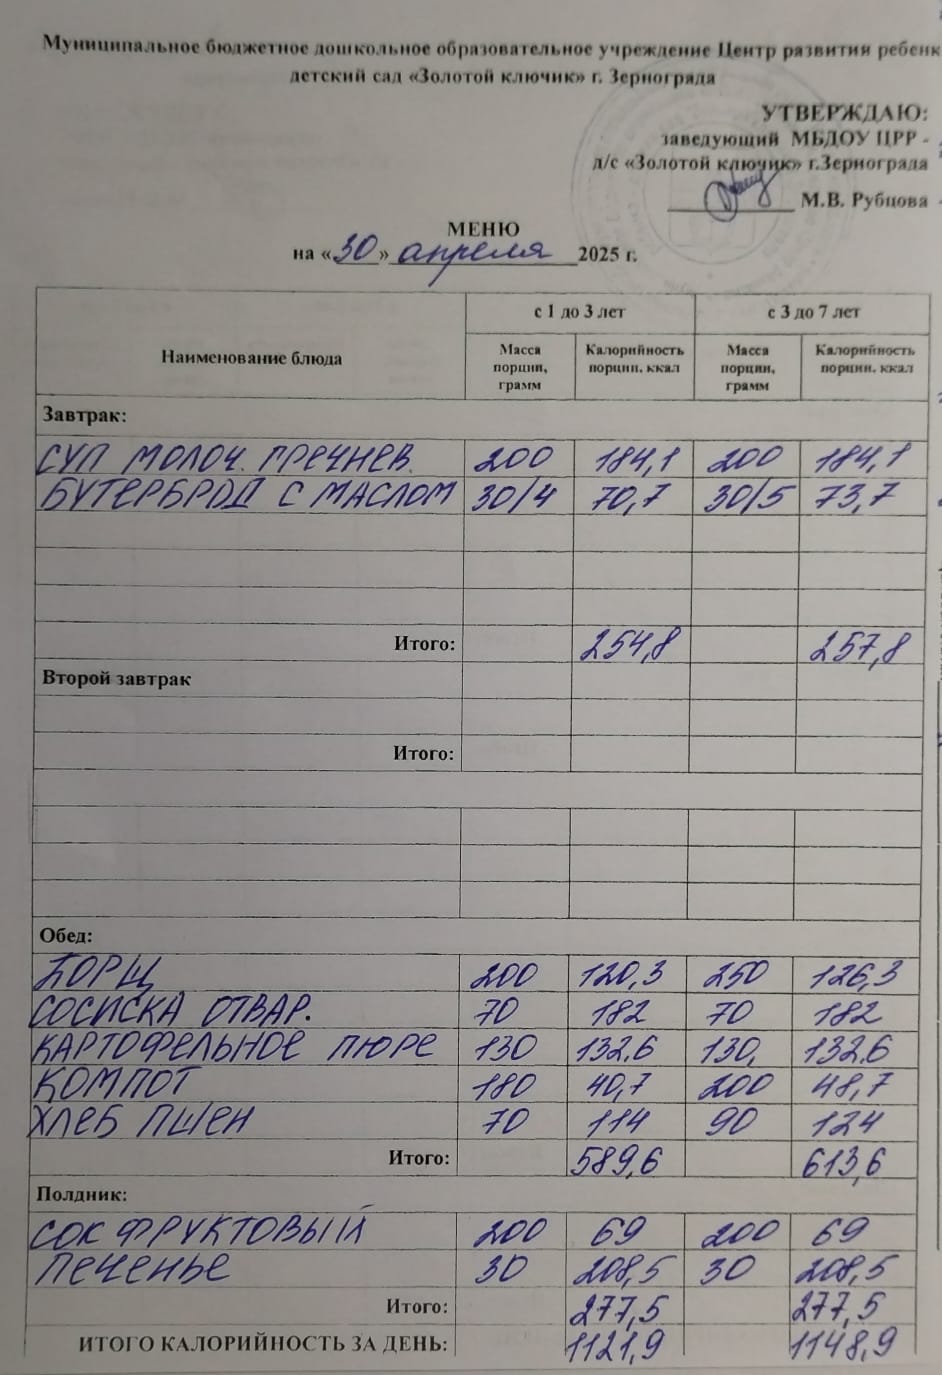 Муниципальное бюджетное дошкольное образовательное учреждение Центр развития ребенк
детский сад «Золотой ключик» г. Зернограда
УТВЕРЖДАЮ:
заведующий МБДОУ ЦРР -
д/с «Золотой ключик» г.Зернограда
М.В. Рубцова
МЕНЮ
на «30» апреля 2025 г.
Наименование блюда с 1 до 3 лет с 3 до 7 лет
Масса порции, грамм Калорийность порции. ккал Масса порции, грамм Калорийность порции. ккал
Завтрак:
СУП МОЛОЧ. ГРЕЧНЕВ. 200 184,1 200 184,1
БУТЕРБРОД С МАСЛОМ 30/4 70,7 30/5 73,7
Итого: 254,8 257,8
Второй завтрак
Итого:
Обед:
БОРЩ 200 120,3 250 126,3
СОСИСКА ОТВАР. 70 182 70 182
КАРТОФЕЛЬНОЕ ПЮРЕ 130 132,6 130, 132,6
КОМПОТ 180 40,7 200 48,7
ХЛЕБ ПШЕН 70 114 90 124
Итого: 589,6 613,6
Полдник:
СОК ФРУКТОВЫЙ 200 69 200 69
ПЕЧЕНЬЕ 30 208,5 30 208,5
Итого: 277,5 277,5
ИТОГО КАЛОРИЙНОСТЬ ЗА ДЕНЬ: 1121,9 1148,9